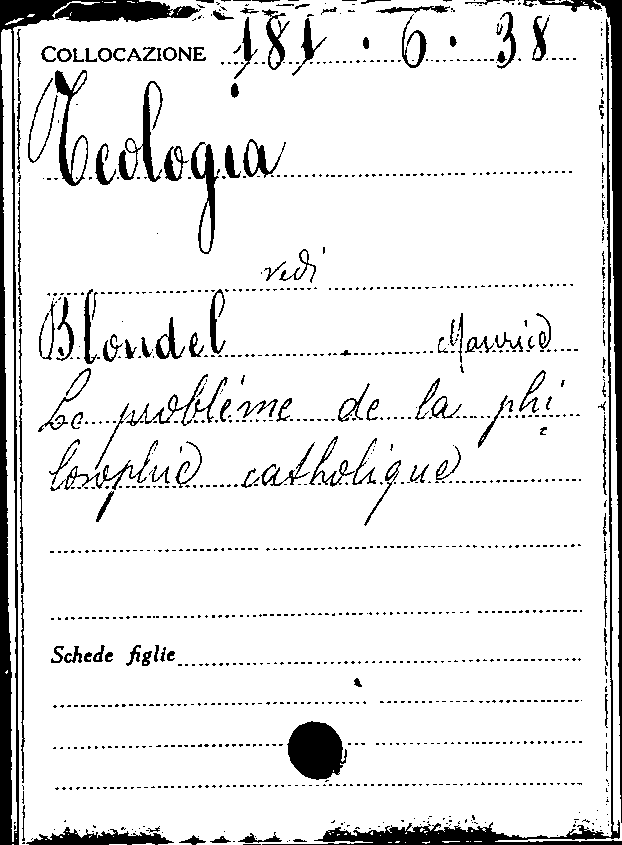 COLLOCAZIONE 181.6.38
Teologia
vedi
Blondel Maurice
Le problème de la phi
losophie catholique
Schede figlie